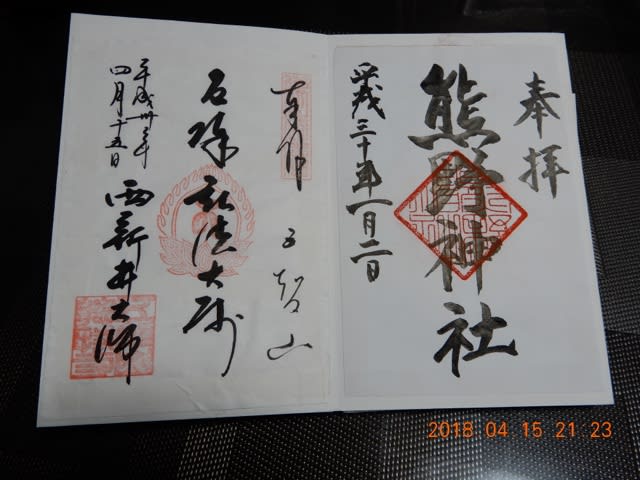 奉拝
熊野神社
平成三十年一月二日
奉拝
五智山
弘法大师
平成卅年
四月十五日
西新井大師
2018 04 15 21 23